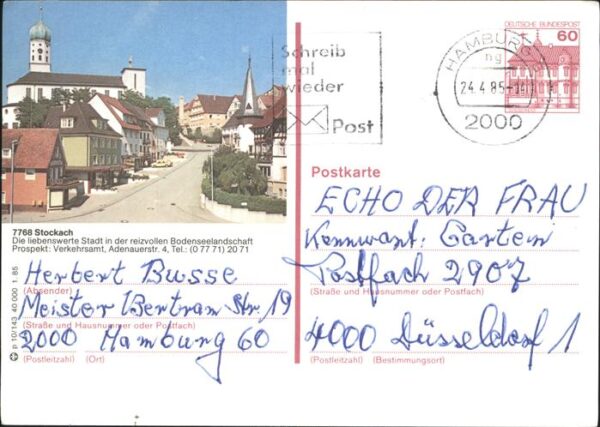 7768 Stockach
Die liebenswerte Stadt in der reizvollen Bodenseelandschaft
Prospekt: Verkehrsamt, Adenauerstr. 4, Tel.: (0 77 71) 20 71
Herbert Busse
(Absender)
Meister Bertram Str. 19
(Straße und Hausnummer oder Postfach)
2000 Hamburg 60
(Postleitzahl) (Ort)
p 10/143 40 000 1. 85
Schreib
mal
wieder
Post
HAMBURG
ng
24.4.85
2000
DEUTSCHE BUNDESPOST
60
Postkarte
ECHO DER FRAU
Kennwort: Garten
Postfach 2907
(Straße und Hausnummer oder Postfach)
4000 Düsseldorf 1
(Postleitzahl) (Bestimmungsort)